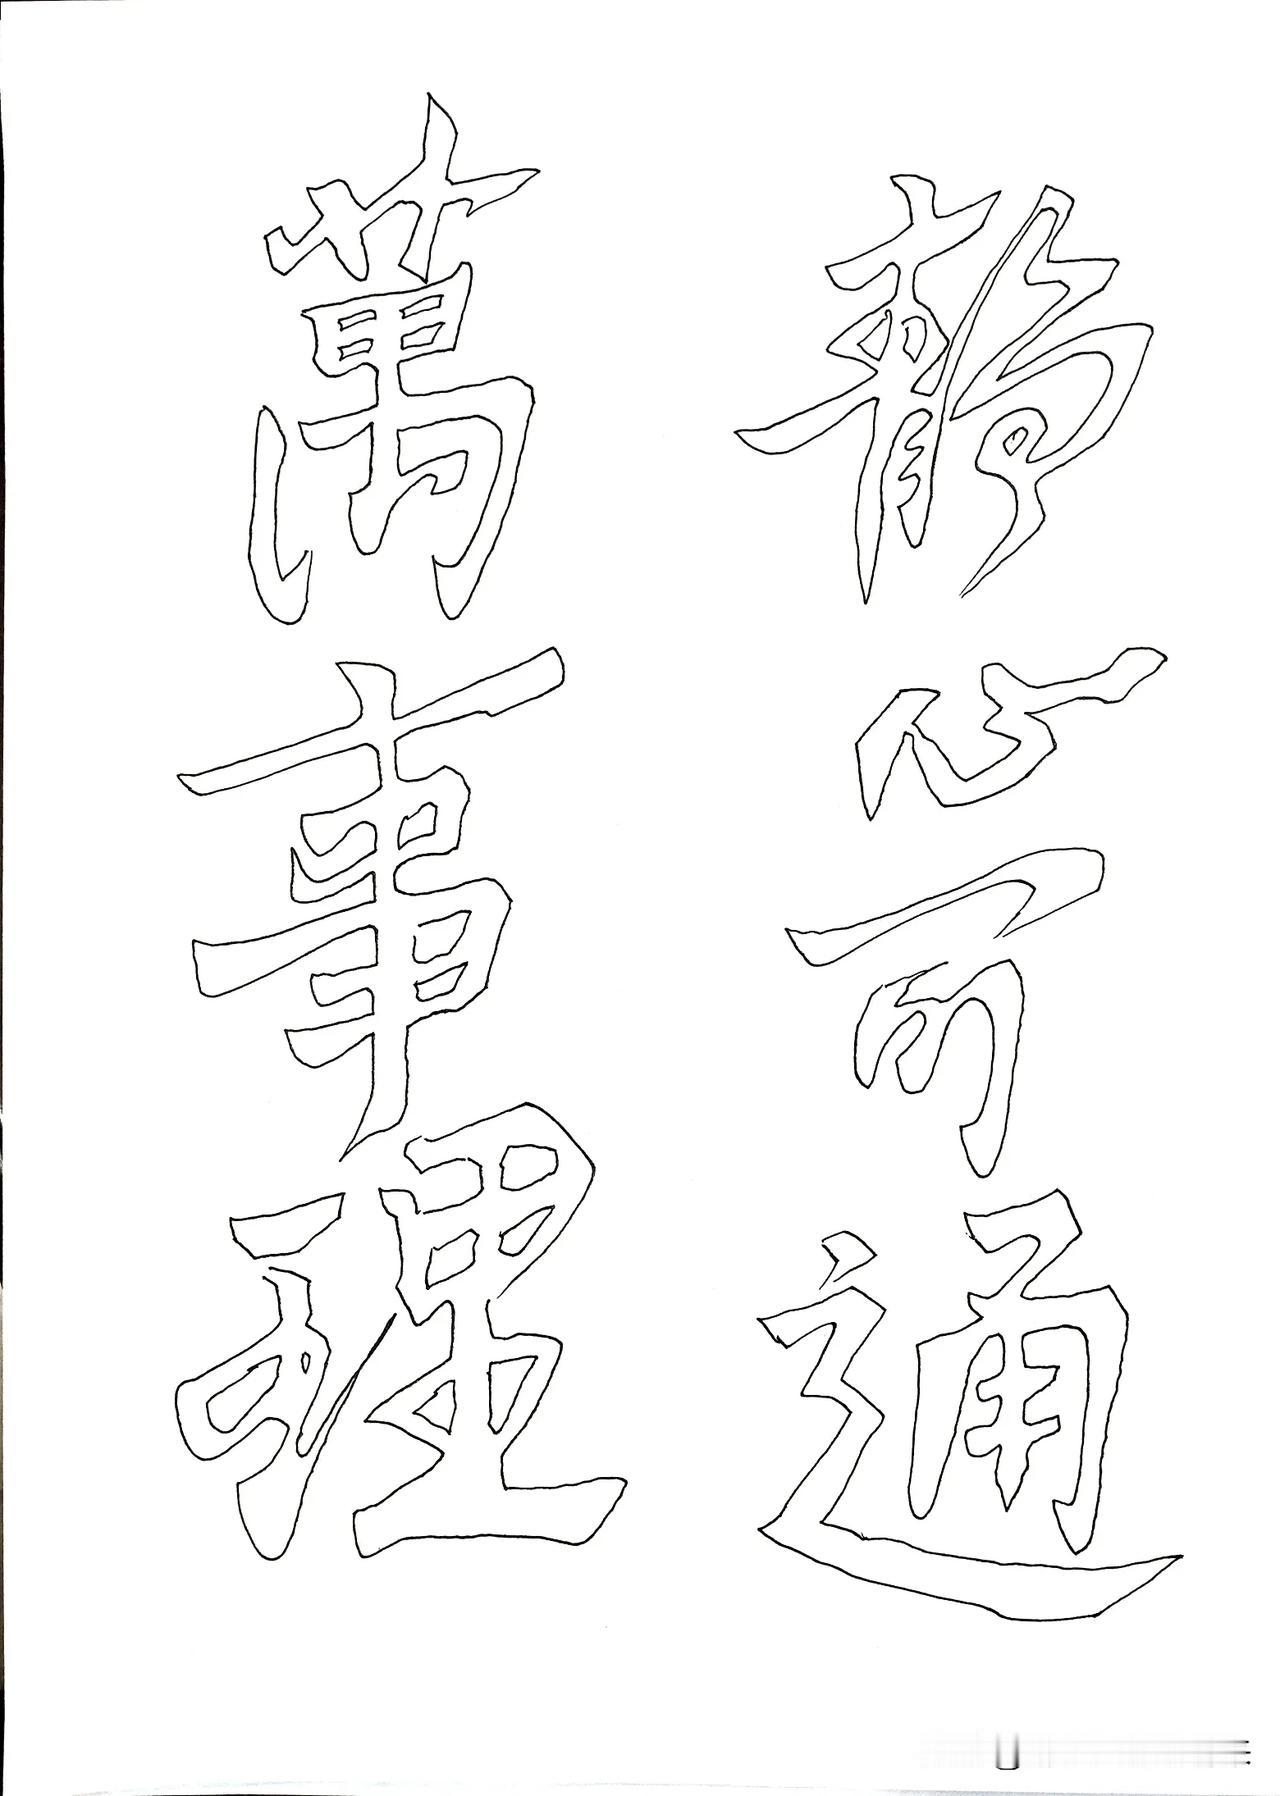 静心可通
萬事理